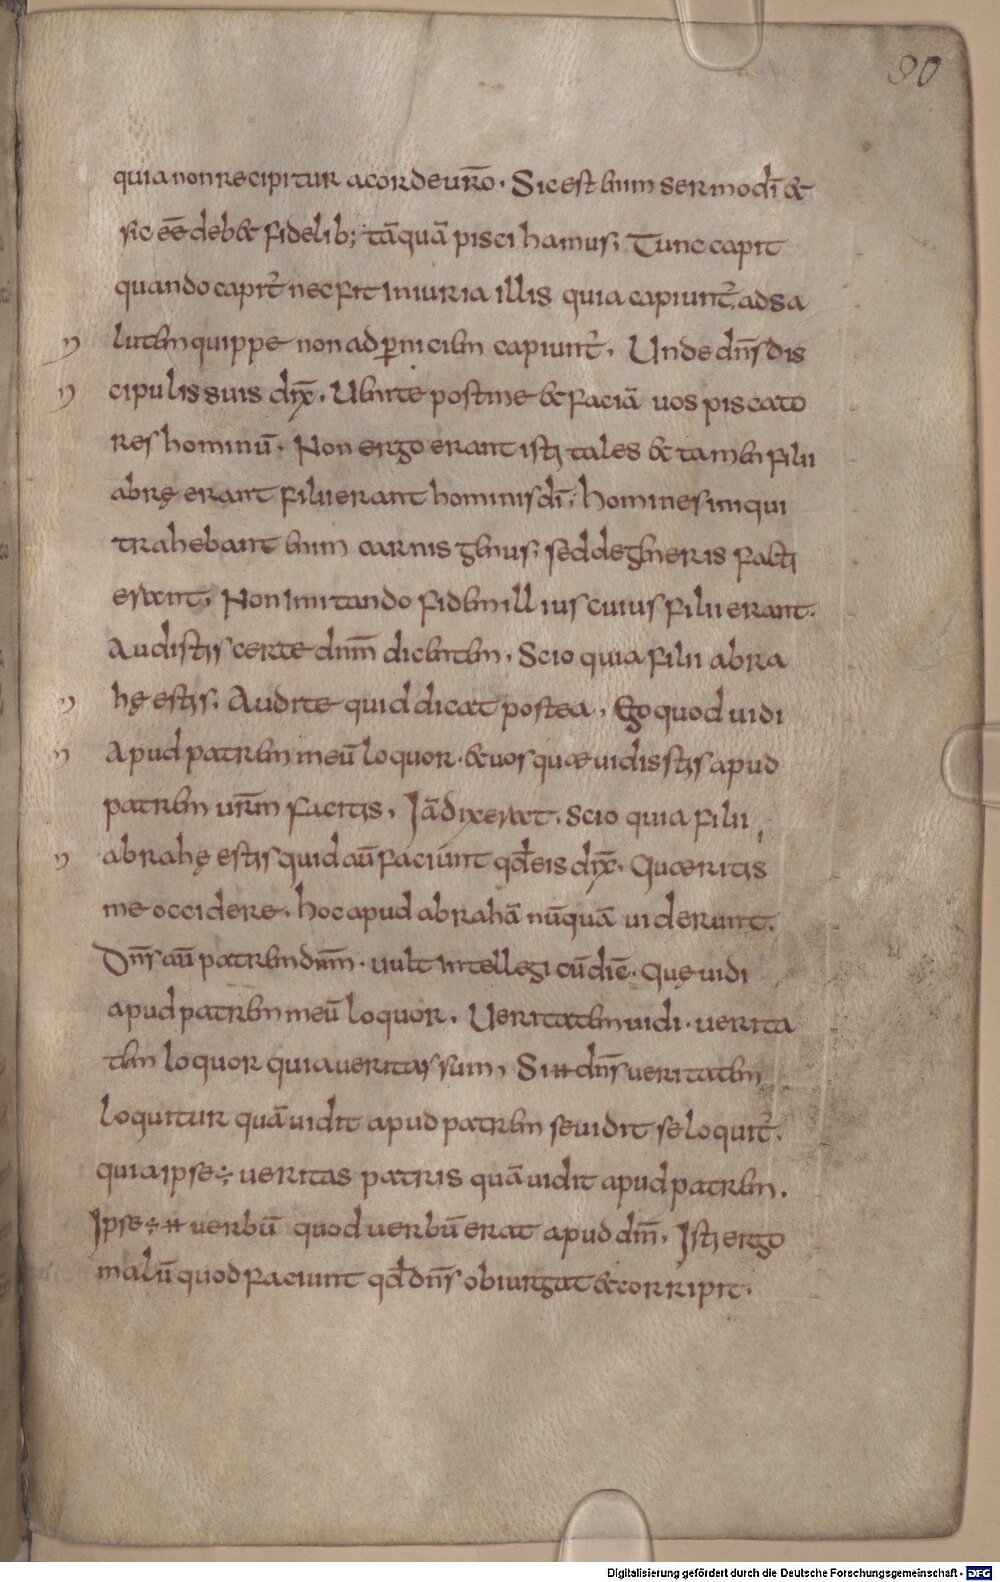 90
quia non recipitur a corde ur̄o. Sic est enim sermo dī &
sic eē deb& fidelib; tāquā pisci hamus; Tunc capit
quando capit̄ nec fit iniuria illis quia capiunt̄, ad sa
lutem quippe non ad p̄niciem capiunt̄. Unde dn̄s dis
cipulis suis dix̄. Uenite post me & faciā uos piscato
res hominū. Non ergo erant isti tales & tamen filii
abrę erant filii erant hominis dī; homines iniqui
trahebant enim carnis genus; sed degeneris facti
erant; Non imitando fidem illius cuius filii erant.
Audistis certe dnm̄ dicentem, Scio quia filii abra
hę estis; Audite quid dicat postea, Ego quod uidi
apud patrem meū loquor. & uos quæ uidistis apud
patrem ur̄m facitis, Iā dixerat. Scio quia filii
abrahę estis quid aū faciunt qđ eis dix̄. Quæritis
me occidere. hoc apud abrahā nūquā uiderunt.
Dn̄s aū patrem dnm̄. uult intellegi cū diē. Quę uidi
apud patrem meū loquor. Ueritatem uidi. uerita
tem loquor quia ueritas sum, Si ħ dn̄s ueritatem
loquitur quā uidit apud patrem se uidit se loquit̄.
quia ipse ÷ ueritas patris quā uidit apud patrem.
Ipse ÷ ħ uerbū quod uerbū erat apud dm̄. Isti ergo
malū quod faciunt qđ dn̄s obiurgat & corripit.
Digitalisierung gefördert durch die Deutsche Forschungsgemeinschaft - DFG